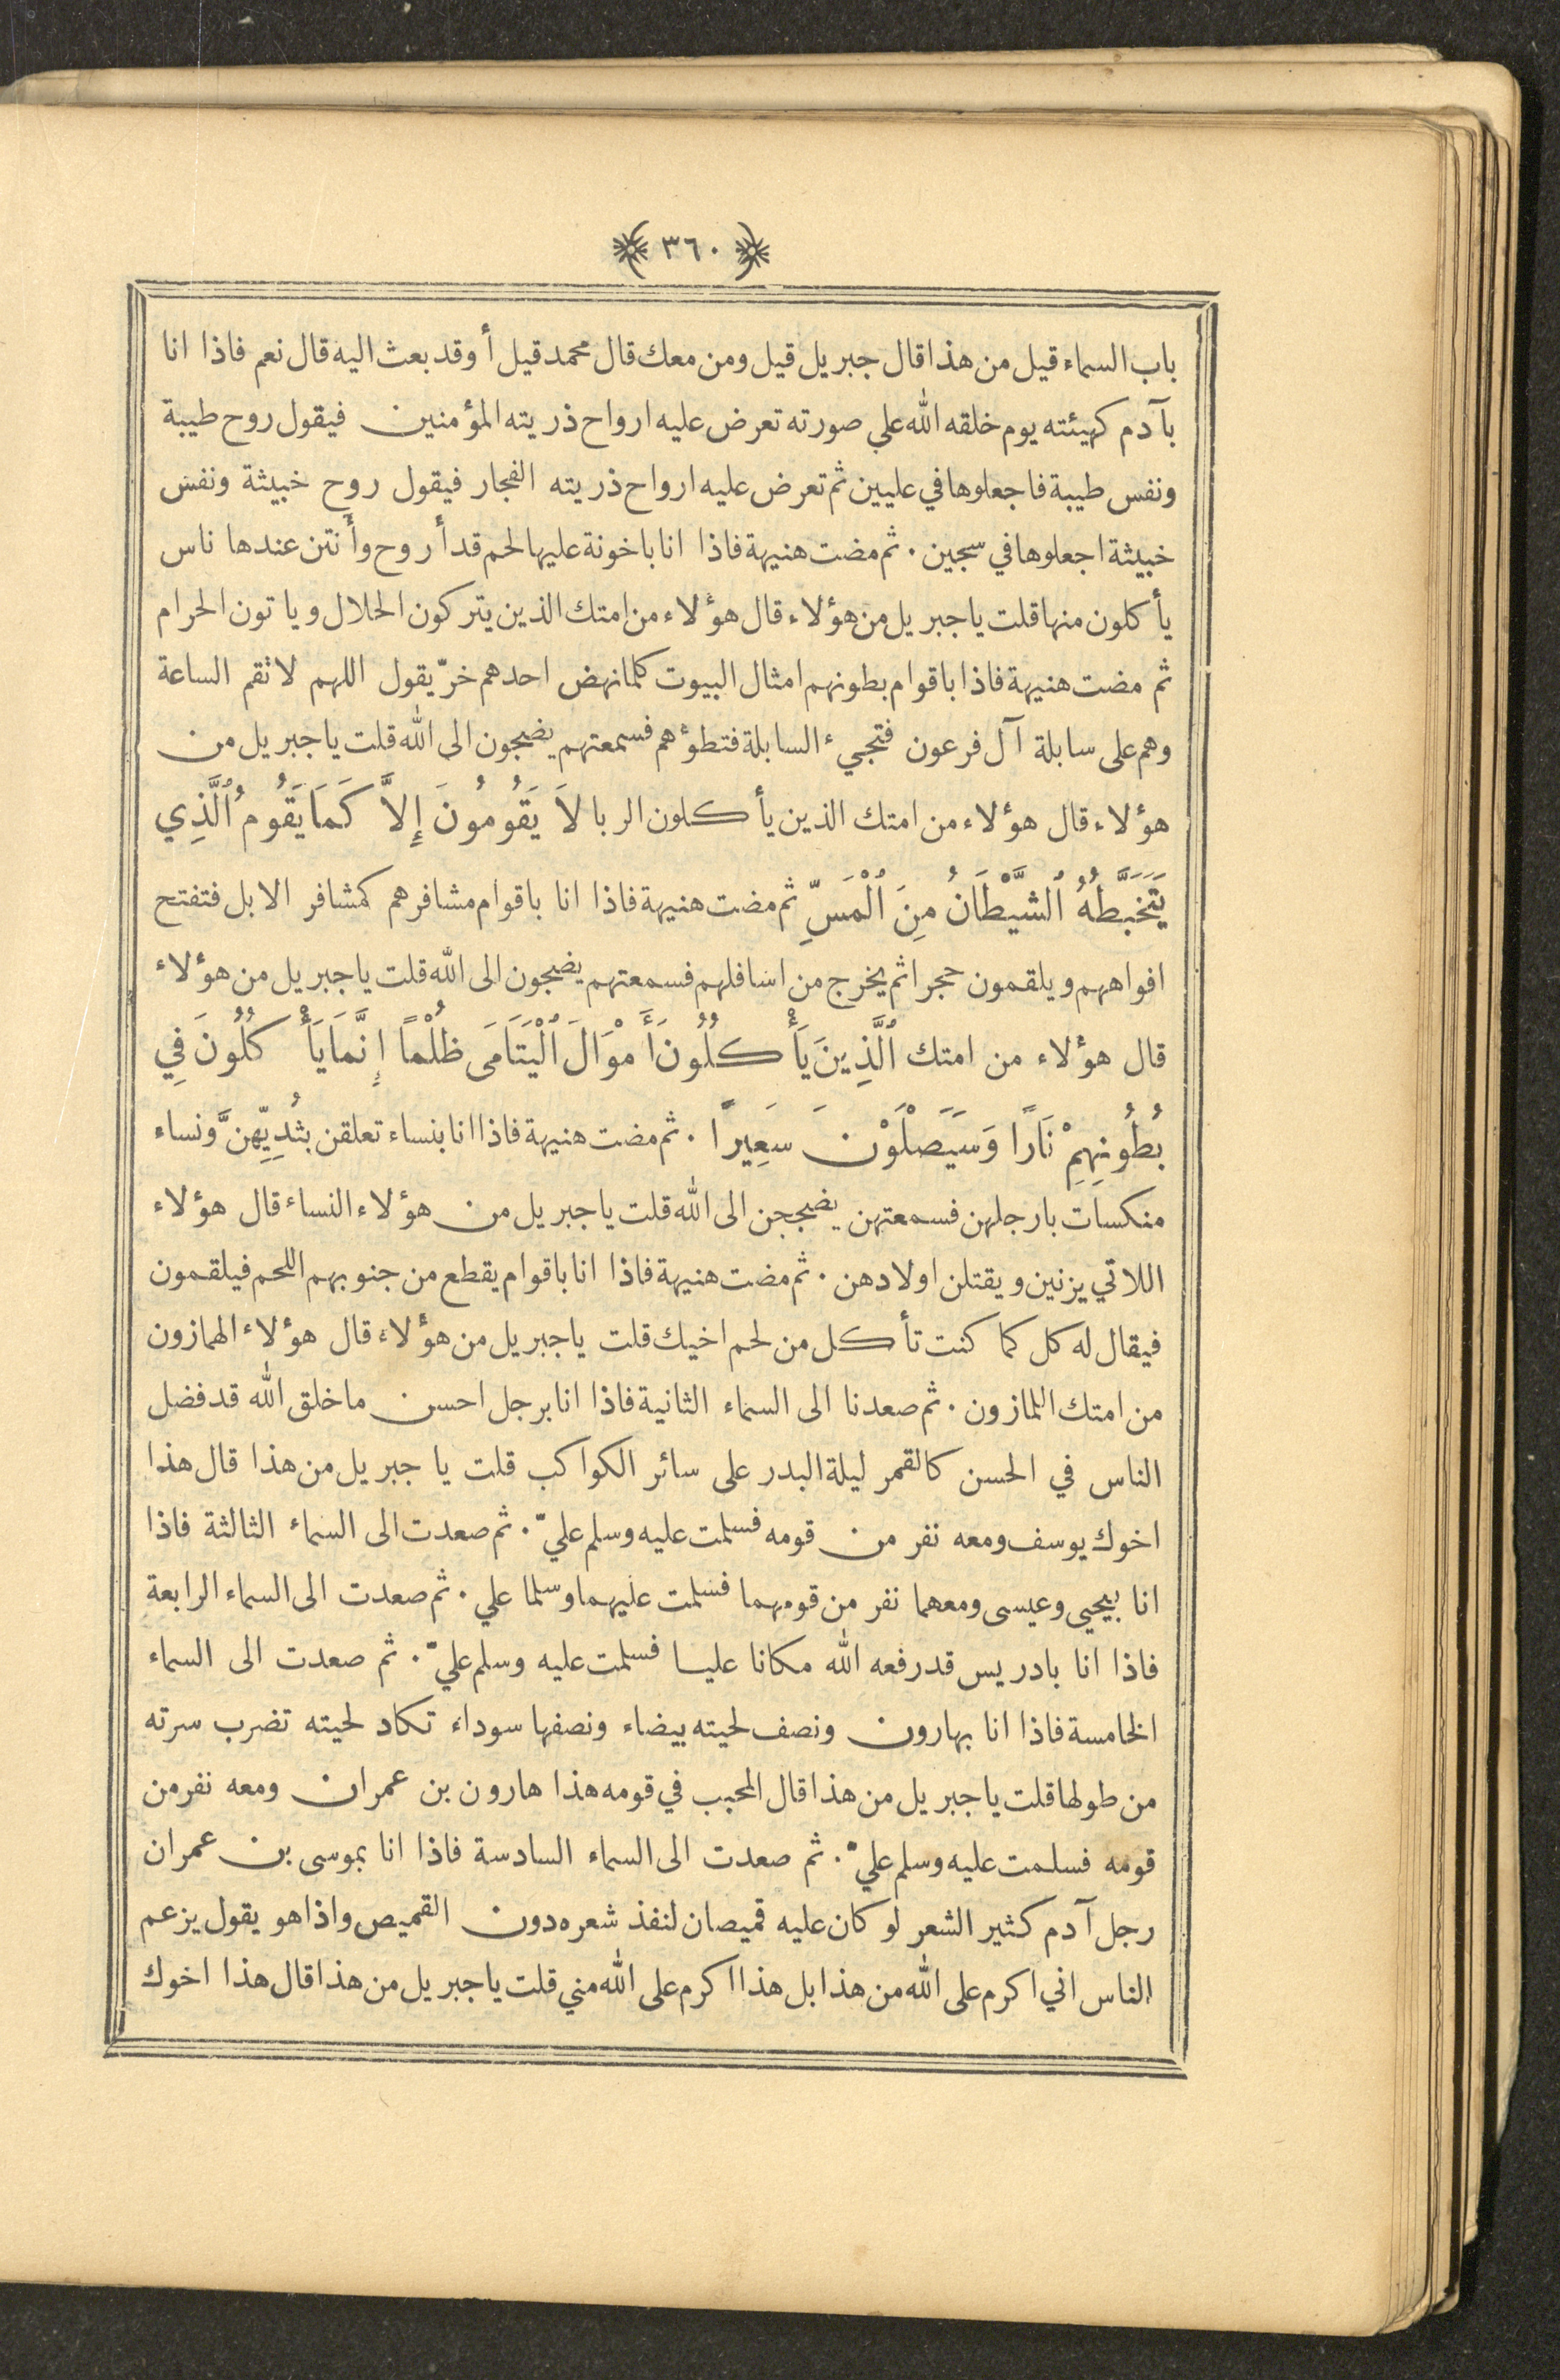 ٣٦٠
باب السماء قيل من هذا قال جبريل قيل ومن معك قال محمد قيل أوقد بعث اليه قال نعم فاذا انا
بآدم كهيئته يوم خلقه الله علي صورته تعرض عليه ارواح ذريته المؤمنين فيقول روح طيبة
ونفس طيبة فاجعلوها في عليين ثم تعرض عليه ارواح ذريته الفجار فيقول روح خبيثة ونفس
خبيثة اجعلوها في سجين . ثم مضت هنيهة فاذا انا باخونة عليها لحم قد أروح وأنتن عندها ناس
يأكلون منها قلت يا جبريل من هؤلاء قال هؤلاء من امتك الذين يتركون الحلال وياتون الحرام
ثم مضت هنيهة فاذا باقوام بطونهم امثال البيوت كلما نهض احدهم خرّ يقول اللهم لا تقم الساعة
وهم على سابلة آل فرعون فتجيء السابلة فتطؤهم فسمعتهم يضجون الى الله قلت يا جبريل من
هؤلاء قال هؤلاء من امتك الذين يأكلون الربا لاَ يَقُومُونَ إِلاَّ كَمَا يَقُومُ ٱلَّذِي
يَتَخَبَّطُهُ ٱلشَّيْطَانُ مِنَ ٱلْمَسِّ ثم مضت هنيهة فاذا انا باقوام مشافرهم كمشافر الابل فتفتح
افواههم ويلقمون حجرا ثم يخرج من اسافلهم فسمعتهم يضجون الى الله قلت يا جبريل من هؤلاء
قال هؤلاء من امتك ٱلَّذِينَ يَأْكُلُونَ أَمْوَالَ ٱلْيَتَامَى ظُلْمًا إِنَّمَا يَأْكُلُونَ فِي
بُطُونِهِمْ نَارًا وَسَيَصْلَوْنَ سَعِيرًا . ثم مضت هنيهة فاذا انا بنساء تعلقن بثُدِيِّهنَّ ونساء
منكسات بارجلهن فسمعتهن يضججن الى الله قلت يا جبريل من هؤلاء النساء قال هؤلاء
اللاتي يزنين ويقتلن اولادهن . ثم مضت هنيهة فاذا انا باقوام يقطع من جنوبهم اللحم فيلقمون
فيقال له كل كما كنت تأكل من لحم اخيك قلت يا جبريل من هؤلاء قال هؤلاء الهمازون
من امتك اللمازون . ثم صعدنا الى السماء الثانية فاذا انا برجل احسن ما خلق الله قد فضل
الناس في الحسن كالقمر ليلة البدر على سائر الكواكب قلت يا جبريل من هذا قال هذا
اخوك يوسف ومعه نفر من قومه فسلمت عليه وسلم عليّ . ثم صعدت الى السماء الثالثة فاذا
انا بيحيى وعيسى ومعهما نفر من قومهما فسلمت عليهما وسلما علي . ثم صعدت الى السماء الرابعة
فاذا انا بادريس قد رفعه الله مكانا عليا فسلمت عليه وسلم عليّ . ثم صعدت الى السماء
الخامسة فاذا انا بهارون ونصف لحيته بيضاء ونصفها سوداء تكاد لحيته تضرب سرته
من طولها قلت يا جبريل من هذا قال المحبب في قومه هذا هارون بن عمران ومعه نفر من
قومه فسلمت عليه وسلم عليّ . ثم صعدت الى السماء السادسة فاذا انا بموسى بن عمران
رجل آدم كثير الشعر لو كان عليه قميصان لنفذ شعره دون القميص واذا هو يقول يزعم
الناس اني اكرم على الله من هذا بل هذا اكرم على الله مني قلت يا جبريل من هذا قال هذا اخوك